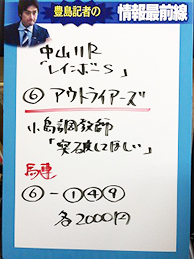 豊島記者の
情報最前線
中山11R
「レインボーS」
⑥アウトライアーズ
小島調教師
「突破してほしい」
馬連
⑥-①④⑨
各2000円